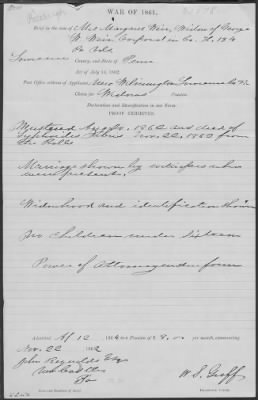 WAR OF 1861.
Brief in the case of Mrs Margaret Weir, Widow of George
W. Weir, Corporal in Co. H, 134
Pa Vols
Lawrence County, and State of Penna
Act of July 14, 1862.
Post Office address of Applicant, New Wilmington Lawrence Co Pa
Claim for Widows Pension.
Declaration and Identification in due Form.
PROOF EXHIBITED.
Mustered Aug 1862 and died of
Typhoid Nov. 22, 1862 from
the Rolls
Marriage shown by witnesses who
were present.
Widowhood and identification shown
No children under sixteen
Power of Attorney in due form
Admitted 12 1864 to a Pension of $8. per month, commencing
Nov. 22 1862
John Reynolds Esq
New Castle
Pa
W. S. Graff